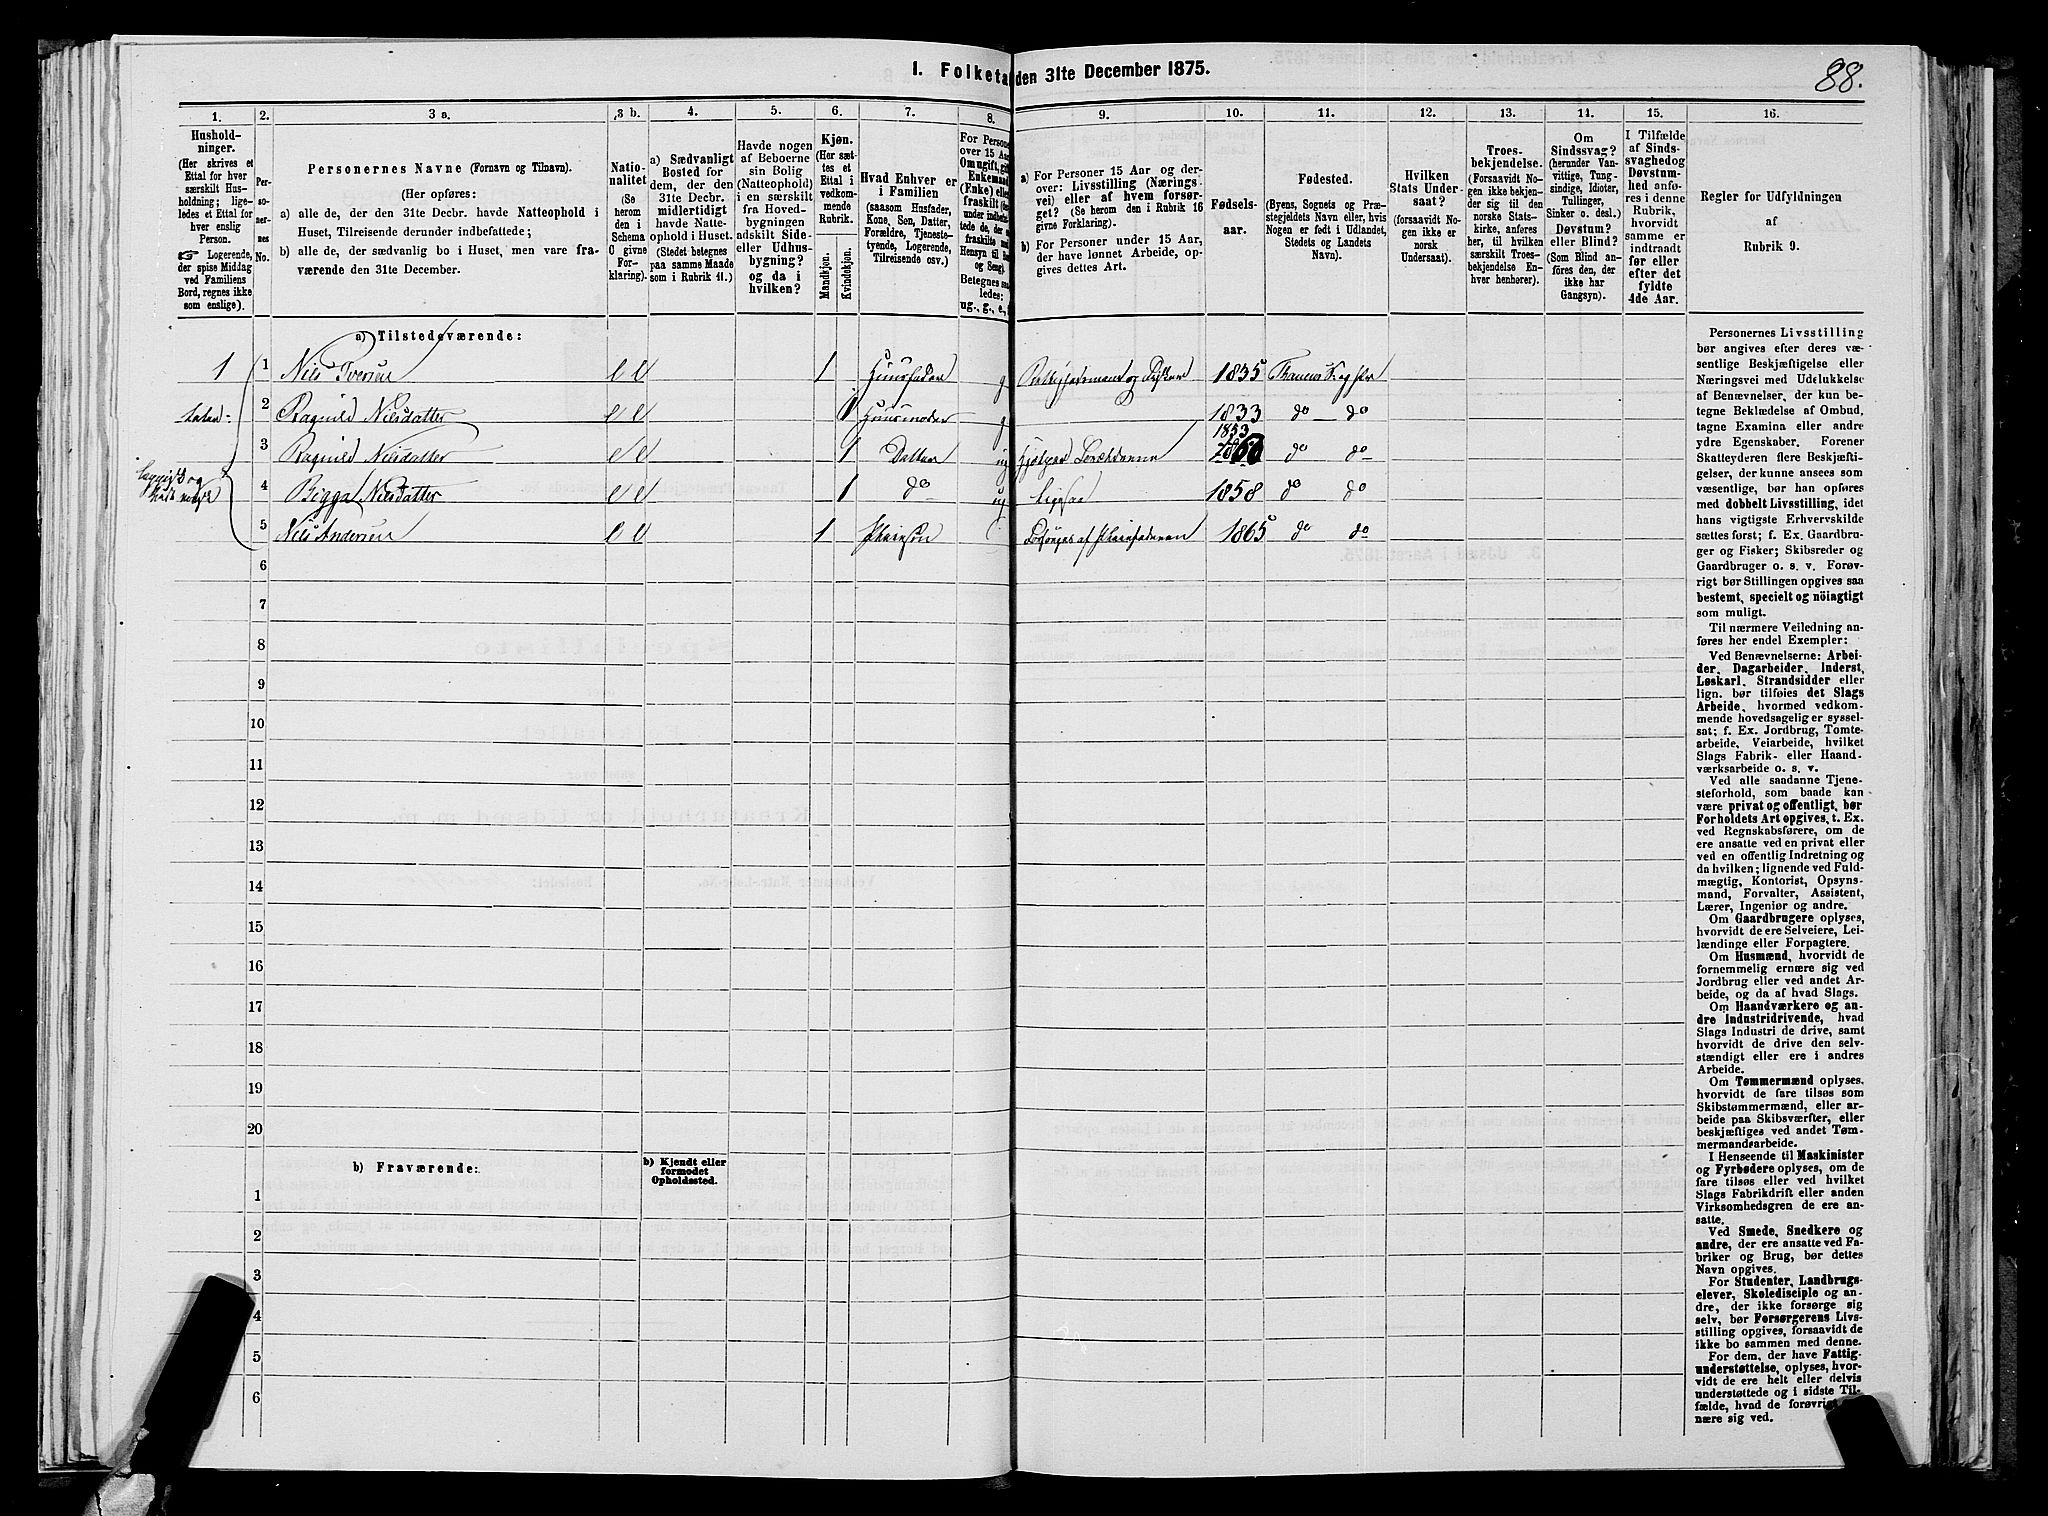 I. Folketa den 31te December 1875.
88.
1.
Hushold-
ninger.
(Her skrives et
Ettal for hver
særskilt Hus-
holdning; lige-
ledes et Ettal for
hver enslig
Person.
☞ Logerende,
der spise Middag
ved Familiens
Bord, regnes ikke
som enslige).
2.
Per-
soner-
nes
No.
3 a.
Personernes Navne (Fornavn og Tilnavn).
(Her opføres:
a) alle de, der den 31te Decbr. havde Natteophold i
Huset, Tilreisende derunder indbefattede;
b) alle de, der sædvanlig bo i Huset, men vare fra-
værende den 31te December.
3 b.
Natio-
nalitet
(Se
herom
den i
Schema
O givne
For-
klaring).
4.
a) Sædvanligt
Bosted for
dem, der den
31te Decbr.
midlertidigt
havde Natte-
ophold i Huset.
(Stedet betegnes
paa samme Maade
som i Rubrik 11.)
5.
Havde nogen
af Beboerne
sin Bolig
(Natteophold)
i en særskilt
fra Hoved-
bygningen
adskilt Side-
eller Udhus-
bygning?
og da i
hvilken?
6.
Kjøn.
(Her sæt-
tes et
Ettal i
vedkom-
mende
Rubrik.
Mandkjøn.
Kvindekjøn.
7.
Hvad Enhver er
i Familien
(saasom Husfader,
Kone, Søn, Datter,
Forældre, Tjeneste-
tyende, Logerende,
Tilreisende osv.)
8.
For Persone
over 15 Aa
Om ugift, gif
Enkemand
(Enke) elle
fraskilt
under indbefa
tede de, der
fraskilte
Hensyn til
og Seng).
Betegnes saa
ledes:
ug., g., e.,
9.
a) For Personer 15 Aar og der-
over: Livsstilling (Nærings-
vei) eller af hvem forsør-
get? (Se herom den i Rubrik 16
givne Forklaring).
b) For Personer under 15 Aar,
der have lønnet Arbeide, op-
gives dettes Art.
10.
Fødsels-
aar.
11.
Fødested.
(Byens, Sognets og Præ-
stegjeldets Navn eller, hvis
Nogen er født i Udlandet,
Stedets og Landets
Navn).
12.
Hvilken
Stats Under-
saat?
(forsaavidt No-
gen ikke er
norsk
Undersaat).
13.
Troes-
bekjendelse.
(Forsaavidt No-
gen ikke bekjen-
der sig til den
norske Stats-
kirke, anføres
her, til hvilken
særskilt Troes-
bekjendelse En-
hver henhører).
14.
Om
Sindssvag?
(herunder Van-
vittige, Tung-
sindige, Idioter,
Tullinger,
Sinker o. desl.)
Døvstum?
eller Blind?
(Som Blind an-
føres den, der
ikke har
Gangsyn).
15.
I Tilfælde
af Sinds-
svaghed og
Døvstum-
hed anfø-
res i denne
Rubrik,
hvorvidt
samme er
indtraadt
før eller
efter det
fyldte
4de Aar.
16.
Regler for Udfyldningen
af
Rubrik 9.
a) Tilstedeværende:
1 1 Nils Iversen 1 Huusfader g 1835
2 Ragnild Nilsdatter 1 Huusmoder g 1833 do — do
1853
3 Ragnild Nilsdatter 1 Datter ug Hjelper Forældrene do do
4 Bigga Nilsdatter 1 do ug ligesaa 1858 do do
5 Nils Andersen 1 Pleiesøn Forsørges af Pleiefaderen 1865 do do
6
7
8
9
10
11
12
13
14
15
16
17
18
19
20
b) Fraværende:
b) Kjendt eller
formodet
Opholdssted.
1
2
3
4
5
6
Personernes Livsstilling
bør angives efter deres væ-
sentlige Beskjæftigelse eller
Næringsvei med Udelukkelse
af Benævnelser, der kun be-
tegne Beklædelse af Ombud,
tagne Examina eller andre
ydre Egenskaber. Forener
Skatteyderen flere Beskjæfti-
gelser, der kunne ansees som
væsentlige, bør han opføres
med dobbelt Livsstilling, idet
hans vigtigste Erhvervskilde
sættes først; f. Ex. Gaardbru-
ger og Fisker; Skibsreder og
Gaardbruger o. s. v. Forøv-
rigt bør Stillingen opgives saa
bestemt, specielt og nöiagtigt
som muligt.
Til nærmere Veiledning an-
føres her endel Exempler:
Ved Benævnelserne: Arbei-
der, Dagarbeider, Inderst,
Løskarl, Strandsidder eller
lign. bør tilføies det Slags
Arbeide, hvormed vedkom-
mende hovedsagelig er syssel-
sat; f. Ex. Jordbrug, Tomte-
arbeide, Veiarbeide, hvilket
Slags Fabrik- eller Haand-
værksarbeide o. s. v.
Ved alle saadanne Tjene-
steforhold, som baade kan
være privat og offentligt, bør
Forholdets Art opgives, t. Ex.
ved Regnskabsførere, om de
ere ansatte ved en privat eller
ved en offentlig Indretning og
da hvilken; lignende ved Fuld-
mægtig, Kontorist, Opsyns-
mand, Forvalter, Assistent,
Lærer, Ingeniør og andre.
Om Gaardbrugere oplyses,
hvorvidt de ere Selveiere, Lei-
lændinge eller Forpagtere.
Om Husmænd, hvorvidt de
fornemmelig ernære sig ved
Jordbrug eller ved andet Ar-
beide, og da af hvad Slags.
Om Haandværkere og an-
dre Industridrivende, hvad
Slags Industri de drive, samt
hvorvidt de drive den selv-
stændigt eller ere i andres
Arbeide.
Om Tømmermænd oplyses,
hvorvidt de fare tilsøs som
Skibstømmermænd, eller ar-
beide paa Skibsværfter, eller
beskjæftiges ved andet Tøm-
mermandsarbeide.
I Henseende til Maskinister
og Fyrbødere oplyses, om de
fare tilsøs eller ved hvilket
Slags Fabrikdrift eller anden
Virksomhedsgren de ere an-
satte.
Ved Smede, Snedkere og
andre, der ere ansatte ved Fa-
briker og Brug, bør dettes
Navn opgives.
For Studenter, Landbrugs-
elever, Skoledisciple og an-
dre, der ikke forsørge sig
selv, bør Forsørgerens Livs-
stilling opgives, forsaavidt de
ikke bo sammen med denne.
For dem, der have Fattig-
understøttelse, oplyses, hvor-
vidt de ere helt eller delvis
understøttede og i sidste Til-
fælde, hvad de forøvrigt
nære sig ved.